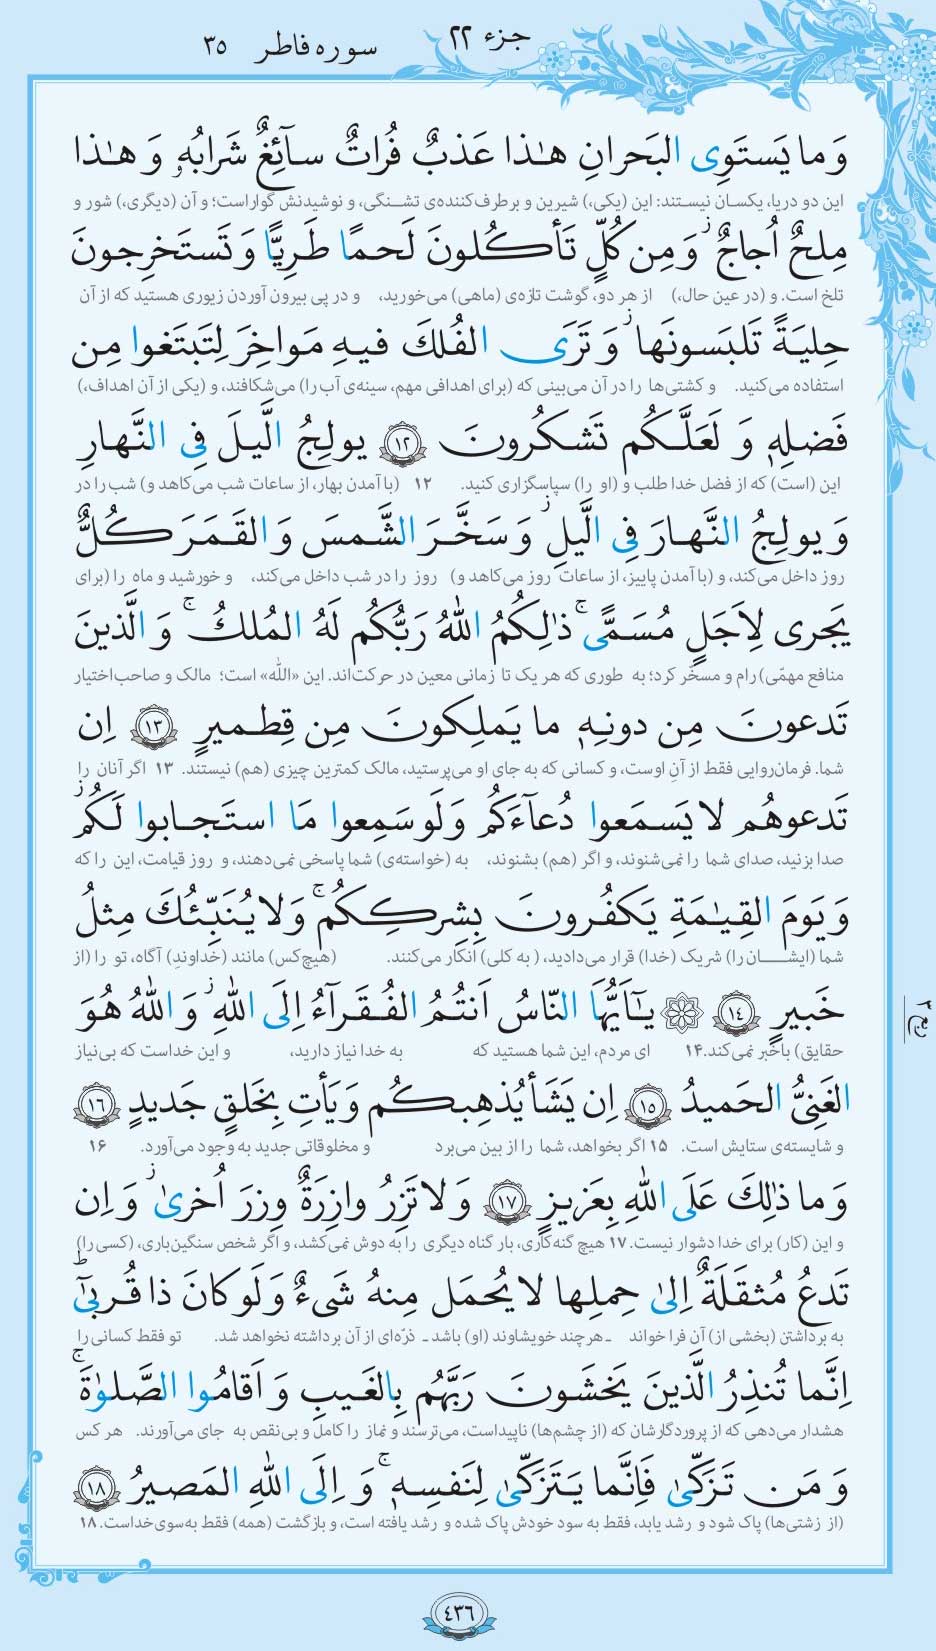 جزء ۲۲ سوره فاطر ۳۵
وَ ما یَستَوِی البَحرانِ هٰذا عَذبٌ فُراتٌ سآئِغٌ شَرابُهٗ وَ هٰذا
این دو دریا، یکسان نیستند: این (یکی،) شیرین و برطرف‌کننده‌ی تشنگی، و نوشیدنش گواراست؛ و آن (دیگری،) شور و
مِلحٌ اُجاجٌ ۖ وَ مِن کُلٍّ تَأکُلونَ لَحمًا طَرِیًّا وَ تَستَخرِجونَ
تلخ است. و (در عین حال،) از هر دو، گوشت تازه‌ی (ماهی) می‌خورید، و در پی بیرون آوردن زیوری هستید که از آن
حِلیَةً تَلبَسونَها ۖ وَ تَرَی الفُلکَ فیهِ مَواخِرَ لِتَبتَغوا مِن
استفاده می‌کنید. و کشتی‌ها را در آن می‌بینی که (برای اهدافی مهم، سینه‌ی آب را) می‌شکافند، و (یکی از آن اهداف،)
فَضلِهٖ وَ لَعَلَّکُم تَشکُرونَ ﴿۱۲﴾ یولِجُ الَّیلَ فِی النَّهارِ
این (است) که از فضل خدا طلب و (او را) سپاسگزاری کنید. ۱۲ (با آمدن بهار، از ساعات شب می‌کاهد و) شب را در
وَ یولِجُ النَّهارَ فِی الَّیلِ ۖ وَ سَخَّرَ الشَّمسَ وَ القَمَرَ کُلٌّ
روز داخل می‌کند، و (با آمدن پاییز، از ساعات روز می‌کاهد و) روز را در شب داخل می‌کند، و خورشید و ماه را (برای
یَجری لِاَجَلٍ مُسَمًّی ۚ ذٰلِکُمُ اللهُ رَبُّکُم لَهُ المُلکُ ۚ وَ الَّذینَ
منافع مهمّی) رام و مسخّر کرد؛ به طوری که هر یک تا زمانی معین در حرکت‌اند. این «الله» است؛ مالک و صاحب‌اختیار
تَدعونَ مِن دونِهٖ ما یَملِکونَ مِن قِطمیرٍ ﴿۱۳﴾ اِن
شما. فرمان‌روایی فقط از آنِ اوست، و کسانی که به جای او می‌پرستید، مالک کمترین چیزی (هم) نیستند. ۱۳ اگر آنان را
تَدعوهُم لا یَسمَعوا دُعآءَکُم وَ لَو سَمِعوا مَا استَجابوا لَکُم ۖ
صدا بزنید، صدای شما را نمی‌شنوند، و اگر (هم) بشنوند، به (خواسته‌ی) شما پاسخی نمی‌دهند، و روز قیامت، این را که
وَ یَومَ القِیٰمَةِ یَکفُرونَ بِشِرکِکُم ۚ وَ لا یُنَبِّئُکَ مِثلُ
شما (ایشان را) شریک (خدا) قرار می‌دادید، (به کلی) انکار می‌کنند. (هیچ‌کس) مانند (خداوندِ) آگاه، تو را (از
خَبیرٍ ﴿۱۴﴾ یٰٓاَیُّهَا النّاسُ اَنتُمُ الفُقَرآءُ اِلَی اللهِ ۖ وَ اللهُ هُوَ
حقایق) باخبر نمی‌کند. ۱۴ ای مردم، این شما هستید که به خدا نیاز دارید، و این خداست که بی‌نیاز
الغَنِیُّ الحَمیدُ ﴿۱۵﴾ اِن یَشَأ یُذهِبکُم وَ یَأتِ بِخَلقٍ جَدیدٍ ﴿۱۶﴾
و شایسته‌ی ستایش است. ۱۵ اگر بخواهد، شما را از بین می‌برد و مخلوقاتی جدید به وجود می‌آورد. ۱۶
وَ ما ذٰلِکَ عَلَی اللهِ بِعَزیزٍ ﴿۱۷﴾ وَ لا تَزِرُ وازِرَةٌ وِزرَ اُخریٰ ۖ وَ اِن
و این (کار) برای خدا دشوار نیست. ۱۷ هیچ گنه‌کاری، بار گناه دیگری را به دوش نمی‌کشد، و اگر شخص سنگین‌باری، (کسی را)
تَدعُ مُثقَلَةٌ اِلیٰ حِملِها لا یُحمَل مِنهُ شَیءٌ وَ لَو کانَ ذا قُربیٰٓ ۗ
به برداشتن (بخشی از) آن فرا خواند ـ هرچند خویشاوند (او) باشد ـ ذرّه‌ای از آن برداشته نخواهد شد. تو فقط کسانی را
اِنَّما تُنذِرُ الَّذینَ یَخشَونَ رَبَّهُم بِالغَیبِ وَ اَقامُوا الصَّلوٰةَ ۚ
هشدار می‌دهی که از پروردگارشان که (از چشم‌ها) ناپیداست، می‌ترسند و نماز را کامل و بی‌نقص به جای می‌آورند. هر کس
وَ مَن تَزَکّیٰ فَاِنَّما یَتَزَکّیٰ لِنَفسِهٖ ۚ وَ اِلَی اللهِ المَصیرُ ﴿۱۸﴾
(از زشتی‌ها) پاک شود و رشد یابد، فقط به سود خودش پاک شده و رشد یافته است، و بازگشت (همه) فقط به‌سوی خداست. ۱۸
۴۳۶